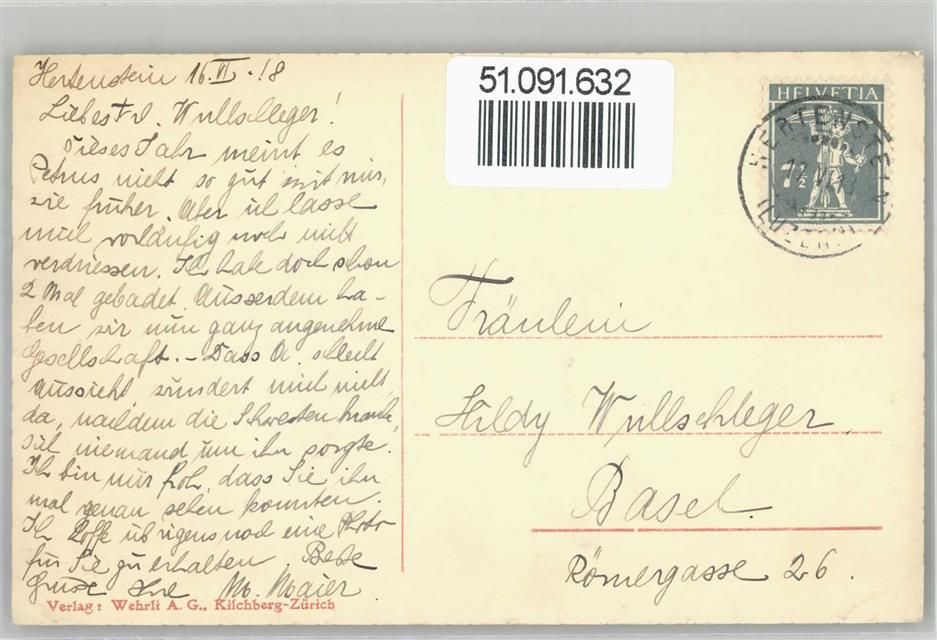 Hertenstein 16.VI.18
Liebes Frl. Wullschleger!
Dieses Jahr meint es
Petrus nicht so gut mit mir,
wie früher. Aber ich lasse
mich vorläufig noch nicht
verdriessen. Ich habe doch schon
2 Mal gebadet. Ausserdem ha-
ben wir nun ganz angenehme
Gesellschaft. - Dass O. schlecht
aussieht, wundert mich nicht,
da, nachdem die Schwester krank,
sich niemand um ihn sorgte.
Ich bin nur froh, dass Sie ihn
mal genau sehen konnten.
Ich hoffe übrigens noch eine Photo
für Sie zu erhalten. Beste
Grüsse Ihre M. Maier.
Verlag: Wehrli A. G., Kilchberg-Zürich
51.091.632
HELVETIA
7½
HERTENSTEIN
(LUZERN)
Fräulein
Hildy Wullschleger,
Basel.
Römergasse 26.